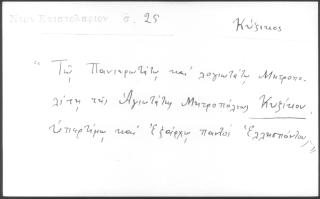 Νέον Ἐπιστολάριον. σ. 25
Κύζικος
"Τῷ Πανιερωτάτῳ καὶ λογιωτάτῳ Μητροπο-
λίτῃ τῆς Ἁγιωτάτης Μητροπόλεως Κυζίκου,
ὑπερτίμῳ καὶ ἐξάρχῳ παντὸς Ἑλλησπόντου,"